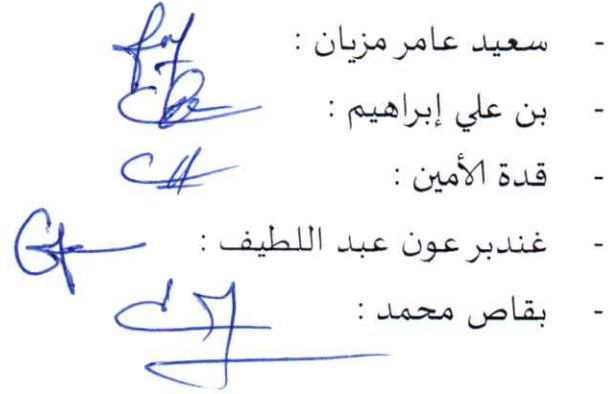 - سعيد عامر مزيان :
- بن علي إبراهيم :
- قدة الأمين :
- غندبر عون عبد اللطيف :
- بقاص محمد :